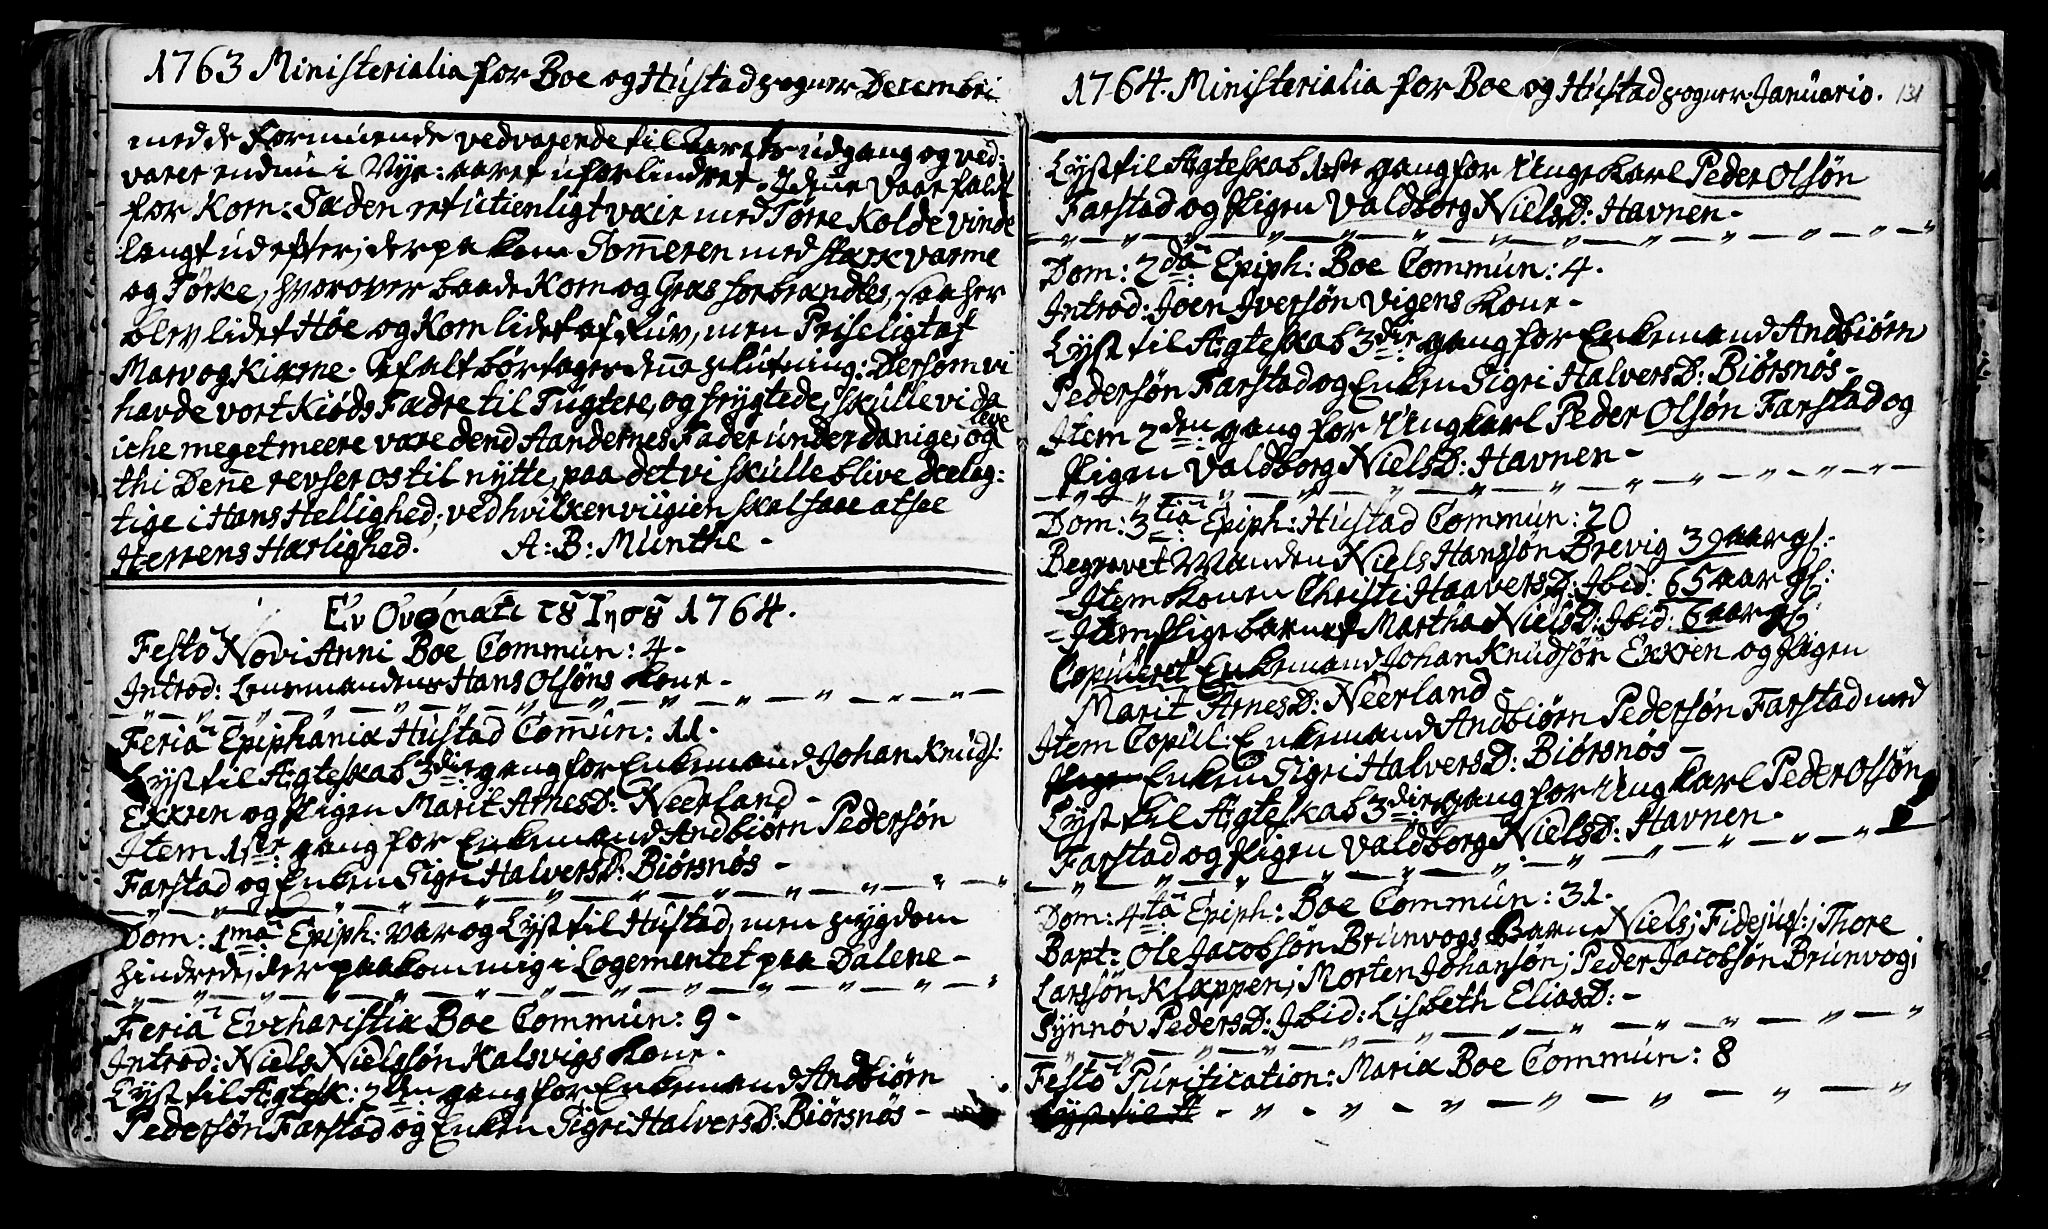 1763 Ministerialia for Boe og Hustad sogner Decembri
med de Formuende vedvarende til Aarets udgang og ved:
varer endnu i Nye-aaret uforlindret. I denne Vaar faldt
for Korn-Sæden ret utienligt vair med Tørre Kolde vinde
langt ud efter, der paa kom Sommeren med stærk varme
og Tørke, hvorover baade Korn og Græs forbrændtes, saa her
blev lidet Høe og Korn lidet af Luv, men Priseligt af
Marv og Kierne. Af alt bør tages denne slutning: Dersom vi
havde vort Kiøds Fædre til Tugtere, og frygtede, skulle vi da
iche meget meere være dend Aandernes Fader underdanige, og leve
thi Denne revser os til nytte, paa det vi skulle blive deelag:
tige i Hans Hellighed; ved hvilken vi igien skal faae at see
Herrens Hærlighed. A: B: Munthe -
Εν Ονόματι τȣ Ιησȣ 1764.
Festo Novi Anni Boe Commun: 4 -
Introd: Lensmandens Hans Olsøns Kone -
Feria Epiphaniæ Hustad Comun: 11.
Lyst til Ægteskab 3die gang for Enkemand Johan Knuds:
Exxren og Pigen Marit ArnesD: Neerland -
Item 1ste gang for Enkemand Andbiørn Pedersøn
Farstad og Enken Sigri HalversD: Biørsnøs -
Dom: 1ma Epiph: var og Lyst til Hustad, men sygdom
hindrede, der paakom mig i Logementet paa Dalene -
Feria Evcharistiæ Boe Commun: 9 -
Introd: Niels Nielssøn Kalsvigs Kone -
Lyst til Ægtesk: 2den gang for Enkemand Andbiørn
Pedersøn Farstad og Enken Sigri HalversD: Biørsnøs -
1764. Ministerialia for Boe og Hustad sogner Januario. 131
Lyst til Ægteskab 1ste gang for Unge karl Peder Olsøn
Farstad og Pigen Valdborg NielsD: Havnen -
Dom: 2da Epiph: Boe Commun: 4.
Introd: Joen Iversøn Vigens Kone -
Lyst til Ægteskab 3die gang for Enkemand Andbiørn
Pedersøn Farstad og Enken Sigri HalversD: Biørsnøs -
Item 2den gang for Ungkarl Peder Olsøn Farstad og
Pigen Valdborg NielsD: Havnen -
Dom: 3tia Epiph: Hustad Commun: 20
Begravet Manden Niels Hansøn Brevig 39 aar gl:
- Item Konen Christi HaaversD: Ibid: 65 aar gl:
- Item Pige barnet Martha NielsD: Ibid: 6 aar gl:
Copuleret Enkemand Johan Knudsøn Exxren og Pigen
Marit ArnesD: Neerland -
Item Copul: Enkemand Andbiørn Pedersøn Farstad med
Enken Sigri HalversD: Biørsnøs -
Lyst til Ægteskab 3die gang for Ungkarl Peder Olsøn
Farstad og Pigen Valdborg NielsD: Havnen -
Dom: 4ta Epiph: Boe Commun: 31.
Bapt: Ole Jacobsøn Brunvogs Barn Niels; Fidejus: Thore
Larssøn Klappen; Morten Johansøn; Peder Jacobsøn Brunvog;
Synnøv PedersD: Ibid: Lisbeth EliasD: -
Festo Purification: Mariæ Boe Commun: 8
Lyst til Æ